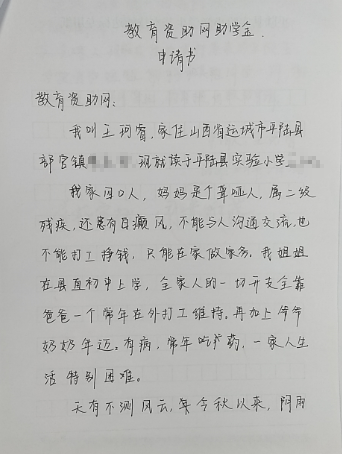 教育资助网助学金
申请书
教育资助网:
我叫王珂睿,家住山西省运城市平陆县
部官镇 现就读于平陆县实验小学
我家四口人,妈妈是个聋哑人,属二级
残疾,还患有白癜风,不能与人沟通交流,也
不能打工挣钱,只能在家做家务,我姐姐
在县直初中上学,全家人的一切开支全靠
爸爸一个常年在外打工维持。再加上爷爷
奶奶年迈。有病,常年吃药,一家人生
活特别困难。
天有不测风云,今秋以来,阴雨